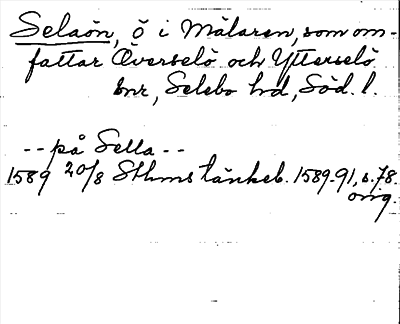 Selaön, ö i Mälaren, som om-
fattar Överselö och Ytterselö
snr, Selebo hd, Söd. l.
-- på Sella --
1589 20/8 Sthms tänkeb. 1589-91, s. 78.
orig.